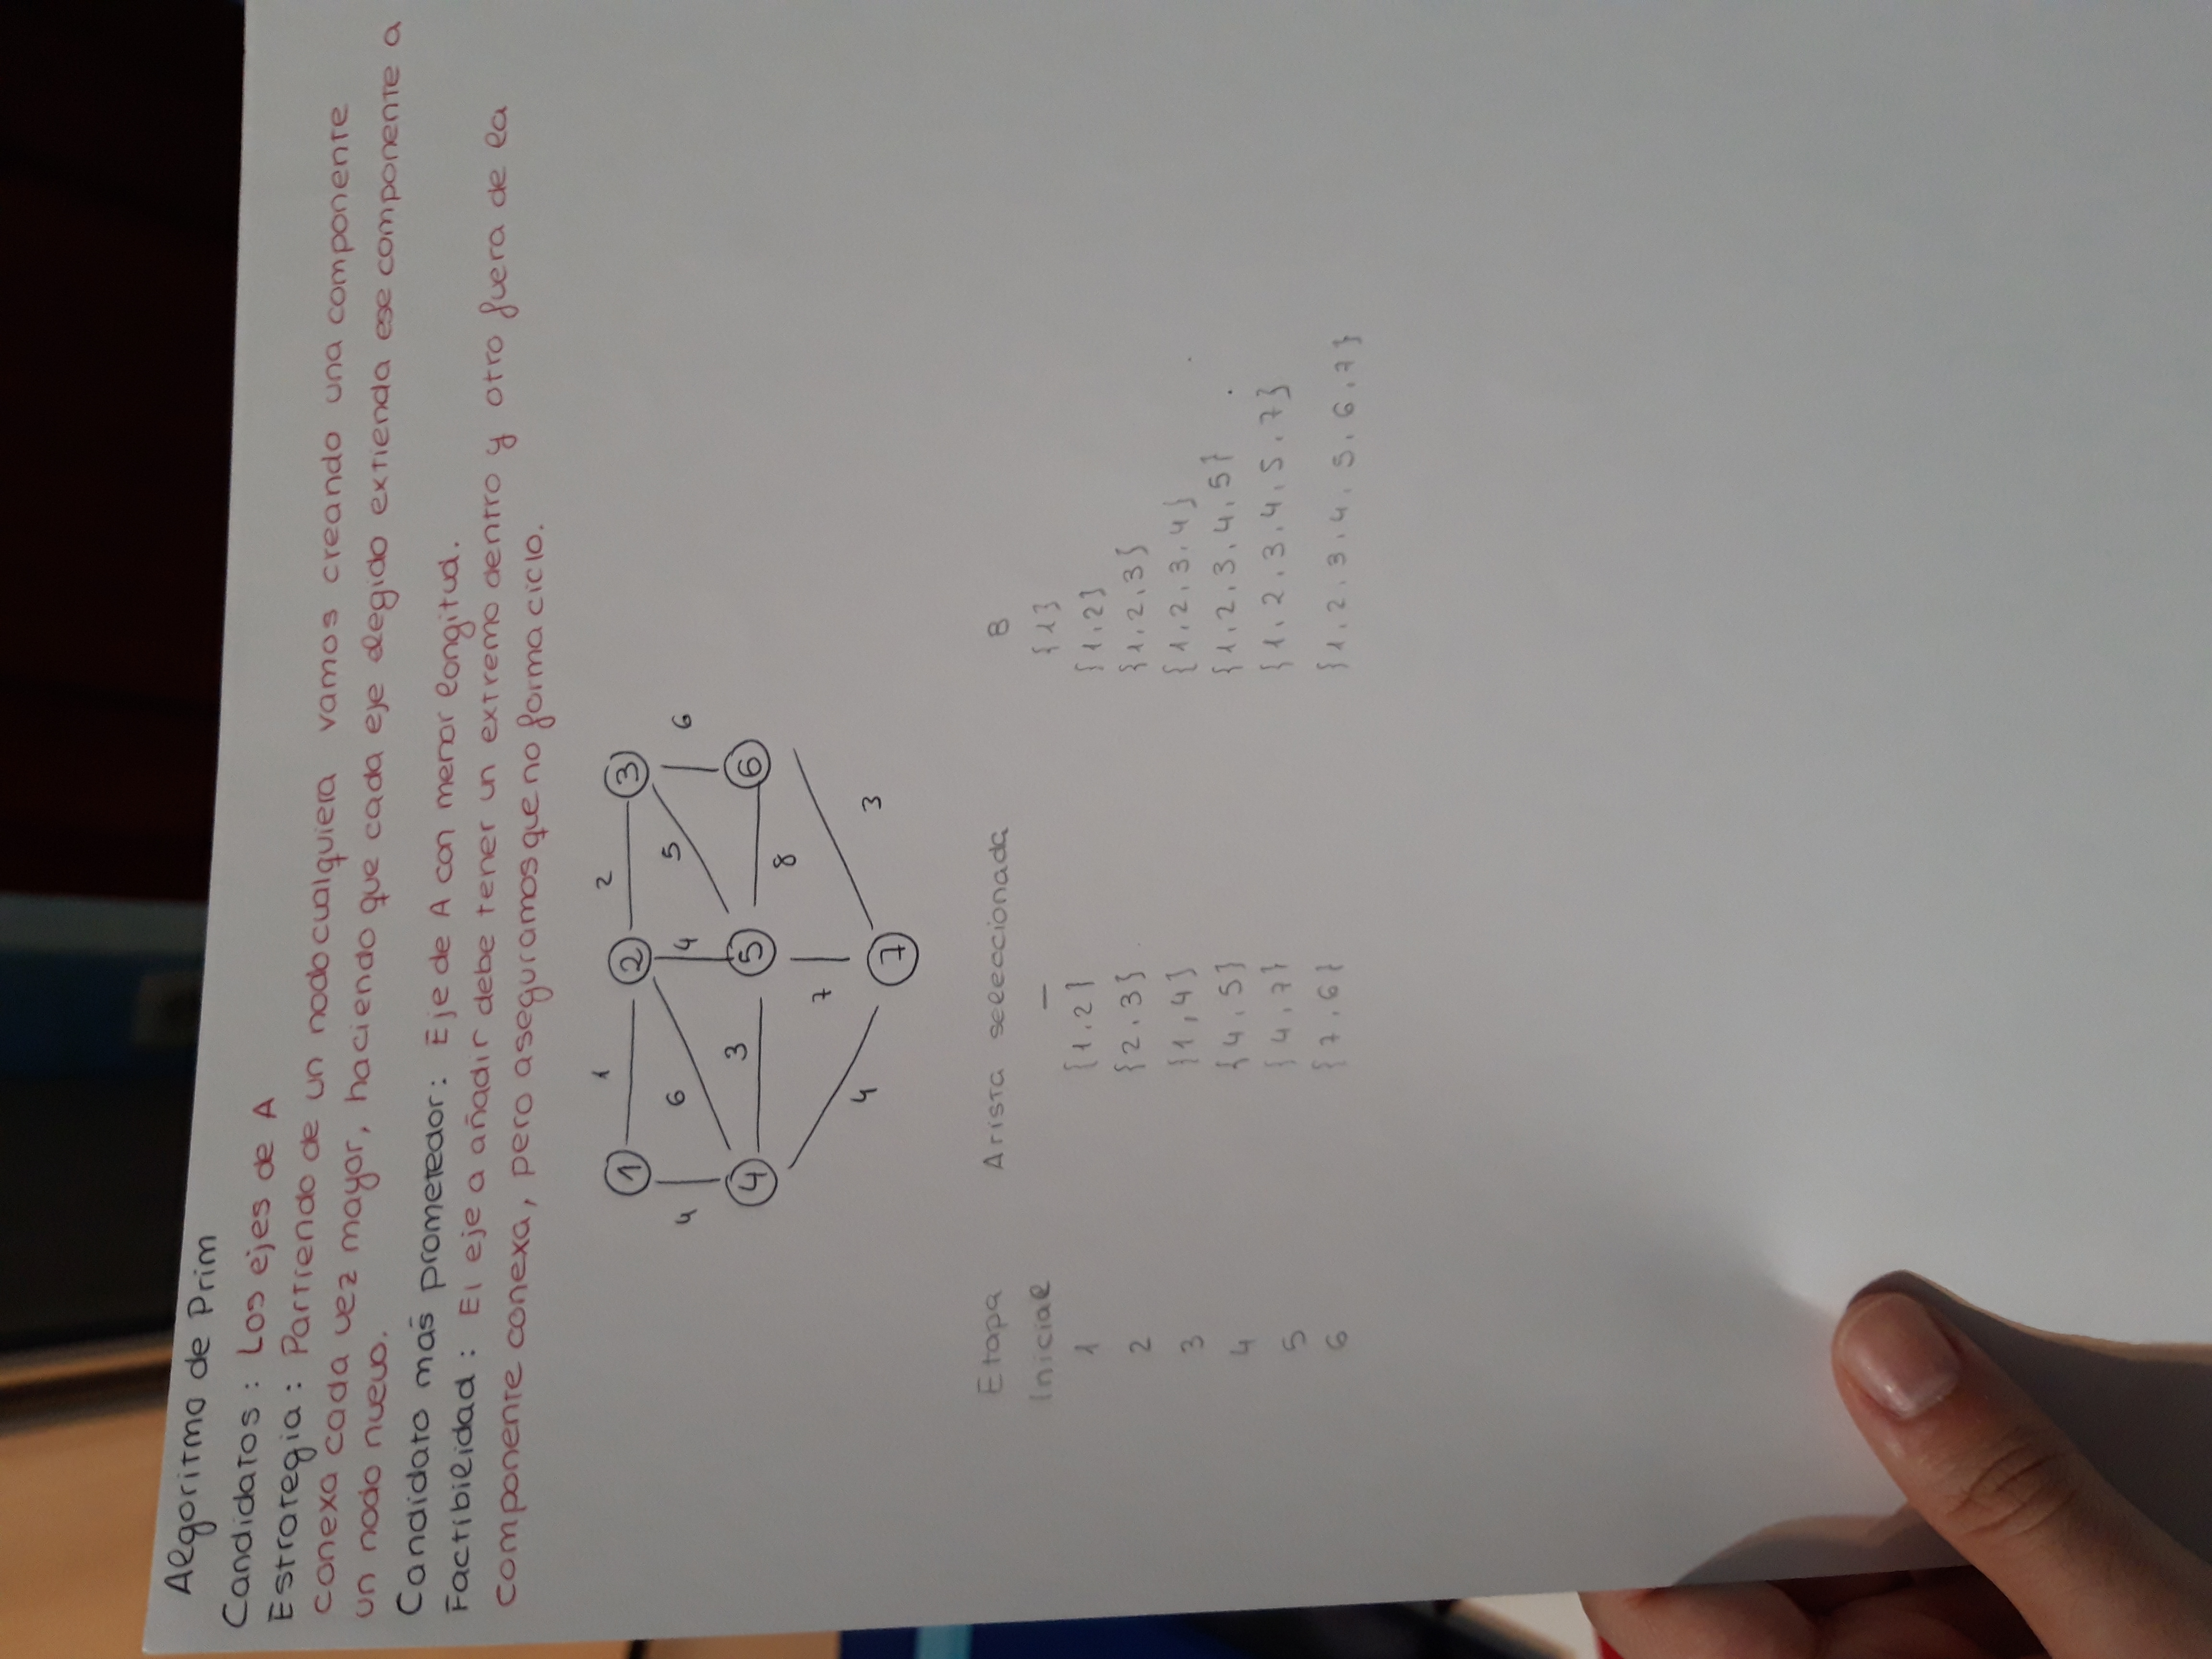 Algoritmo de Prim
Candidatos: Los ejes de A
Estrategia: Partiendo de un nodo cualquiera vamos creando una componente
conexa cada vez mayor, haciendo que cada eje elegido extienda ese componente a
un nodo nuevo.
Candidato más prometedor: Eje de A con menor longitud.
Factibilidad: El eje a añadir debe tener un extremo dentro y otro fuera de la
componente conexa, pero aseguramos que no forma ciclo.
1 2
1 2 3
4 6 4 5 6
3
4 5 6
8
7
4 3
7
Etapa Arista seleccionada B
Inicial — {1}
1 {1,2} {1,2}
2 {2,3} {1,2,3}
3 {1,4} {1,2,3,4}
4 {4,5} {1,2,3,4,5}
5 {4,7} {1,2,3,4,5,7}
6 {7,6} {1,2,3,4,5,6,7}